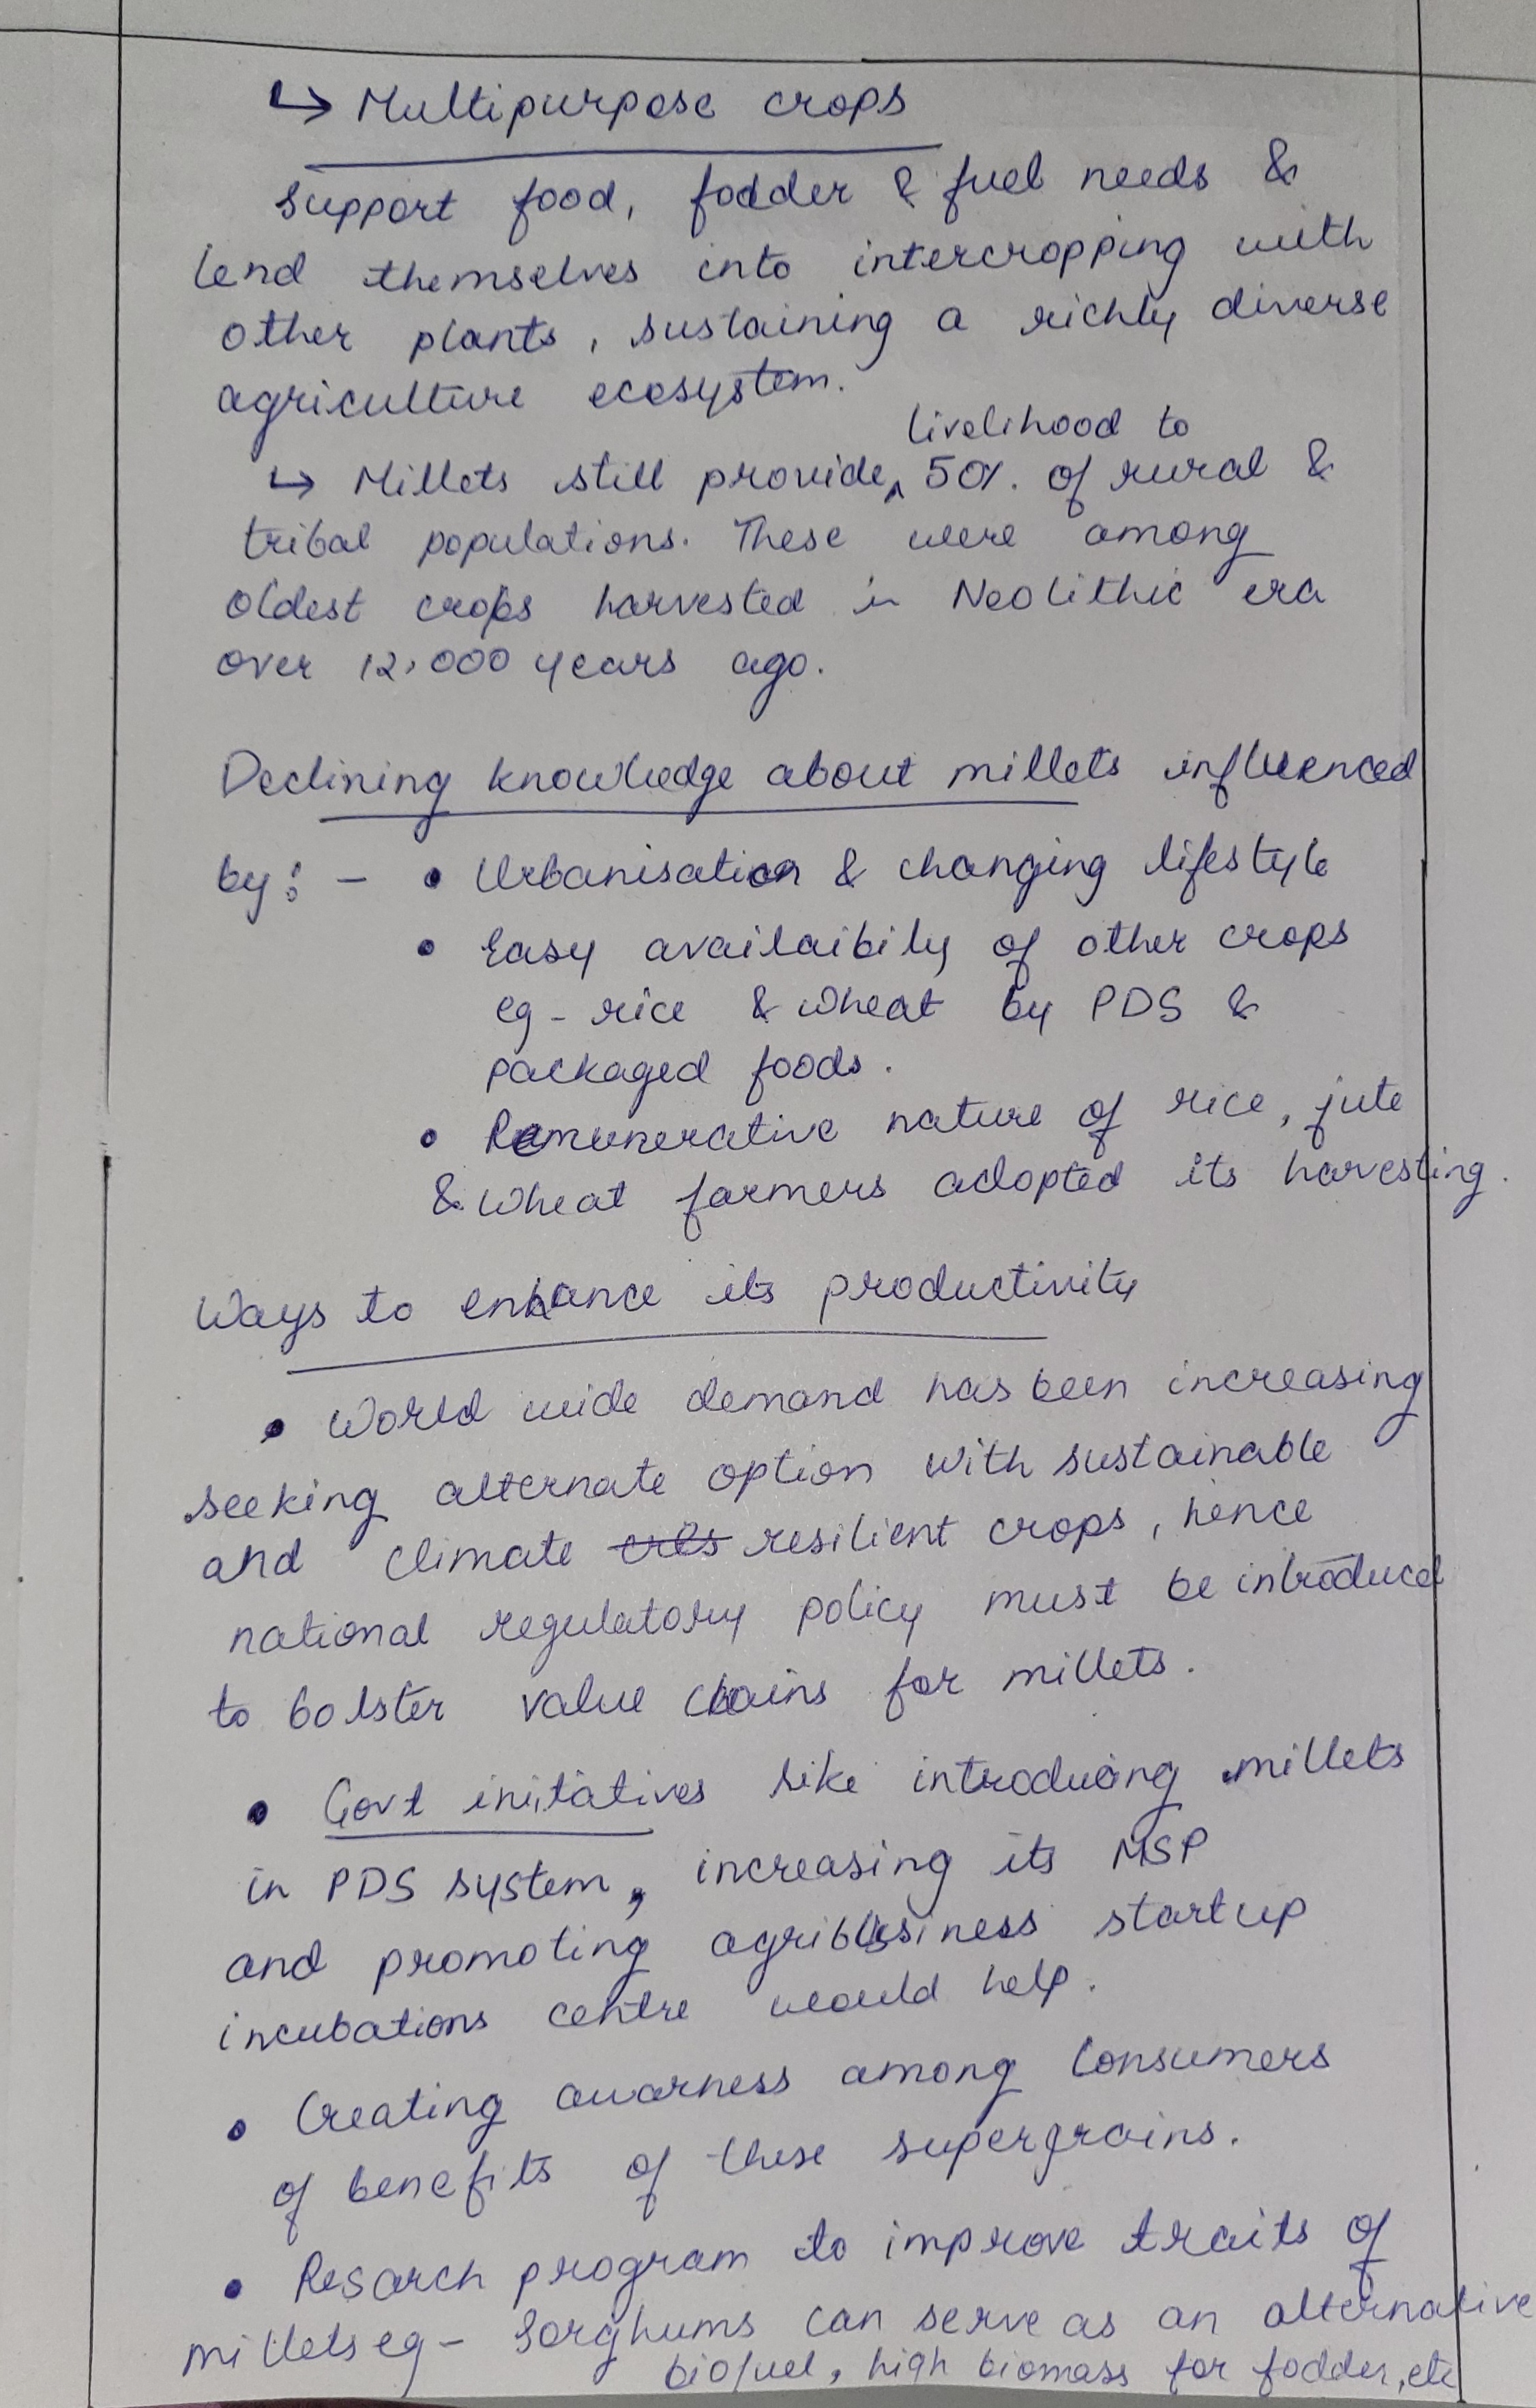 ↳ Multipurpose crops
support food, fodder & fuel needs &
lend themselves into intercropping with
other plants, sustaining a richly diverse
agriculture ecosystem.
livelihood to
↳ Millets still provide ^ 50% of rural &
tribal populations. These were among
oldest crops harvested in Neolithic era
over 12,000 years ago.
Declining knowledge about millets influenced
by: - • Urbanisation & changing lifestyle
• Easy availaibily of other crops
eg - rice & wheat by PDS &
packaged foods.
• Remunerative nature of rice, jute
& wheat farmers adopted its harvesting.
Ways to enhance its productivity
• World wide demand has been increasing
seeking alternate option with sustainable
and climate resilient crops, hence
national regulatory policy must be introduced
to bolster value chains for millets.
• Govt initiatives like introducing millets
in PDS system, increasing its MSP
and promoting agribusiness startup
incubations centre would help.
• Creating awarness among consumers
of benefits of these supergrains.
• Research program to improve traits of
millets eg - Sorghums can serve as an alternative
biofuel, high biomass for fodder, etc